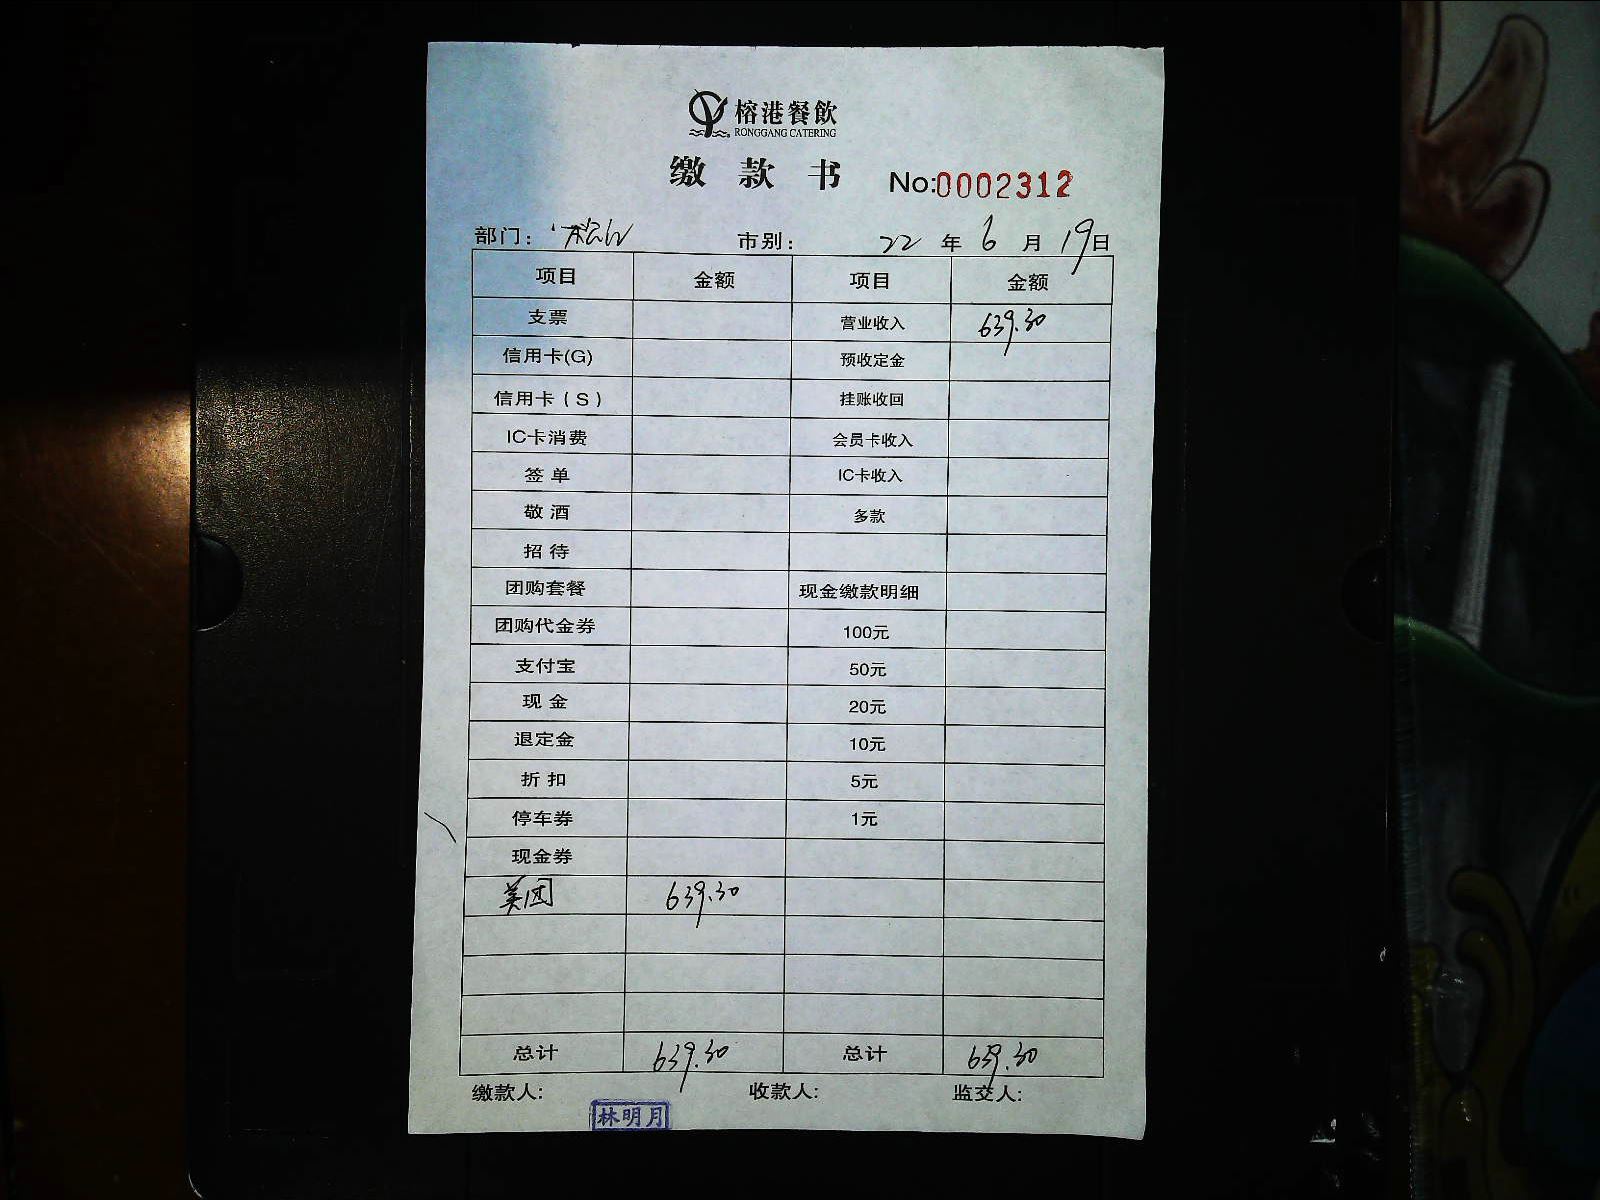 榕港餐飲
RONGGANG CATERING
缴 款 书 No:0002312
部门: 市别: 22 年 6 月 19 日
项目 金额 项目 金额
支票 营业收入 639.30
信用卡(G) 预收定金
信用卡(S) 挂账收回
IC卡消费 会员卡收入
签单 IC卡收入
敬酒 多款
招待
团购套餐 现金缴款明细
团购代金券 100元
支付宝 50元
现金 20元
退定金 10元
折扣 5元
停车券 1元
现金券
美团 639.30
总计 639.30 总计 639.30
缴款人: 收款人: 监交人:
林明月